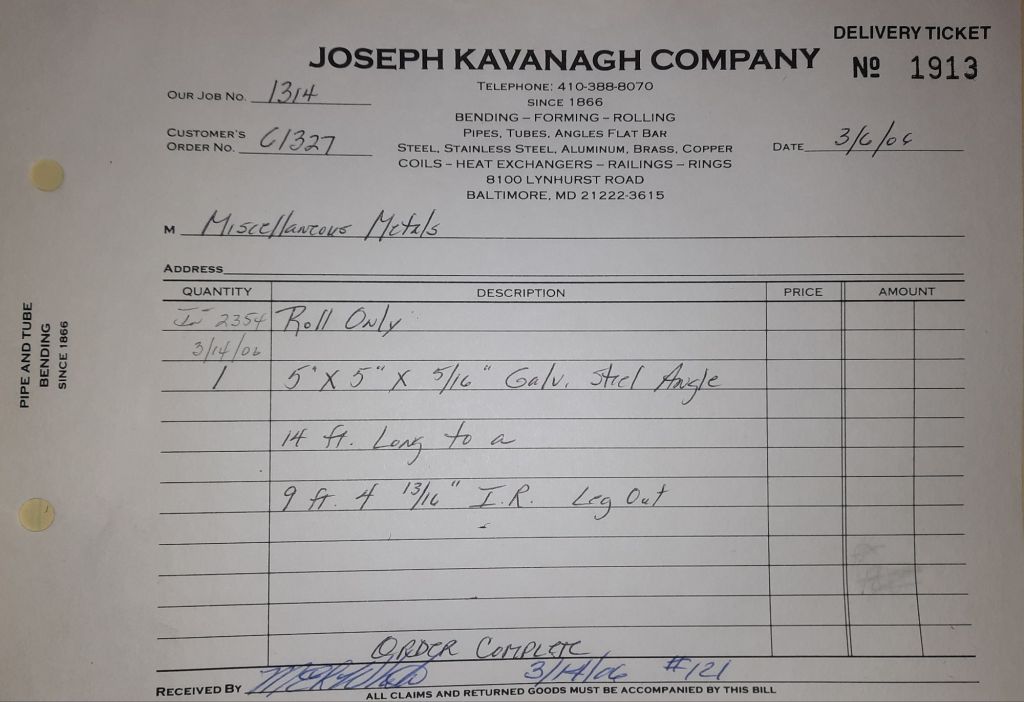 DELIVERY TICKET
JOSEPH KAVANAGH COMPANY
Nº 1913
TELEPHONE: 410-388-8070
SINCE 1866
BENDING – FORMING – ROLLING
PIPES, TUBES, ANGLES FLAT BAR
STEEL, STAINLESS STEEL, ALUMINUM, BRASS, COPPER
COILS – HEAT EXCHANGERS – RAILINGS – RINGS
8100 LYNHURST ROAD
BALTIMORE, MD 21222-3615
OUR JOB NO. 1314
CUSTOMER'S
ORDER NO. 61327
DATE 3/6/06
M Miscellaneous Metals
ADDRESS
QUANTITY DESCRIPTION PRICE AMOUNT
2354 Roll Only
3/14/06
1 5" X 5" X 5/16" Galv. Steel Angle
14 ft. Long to a
9 ft. 4 13/16" I.R. Leg Out
ORDER COMPLETE
RECEIVED BY 3/14/06 #121
ALL CLAIMS AND RETURNED GOODS MUST BE ACCOMPANIED BY THIS BILL
PIPE AND TUBE
BENDING
SINCE 1866